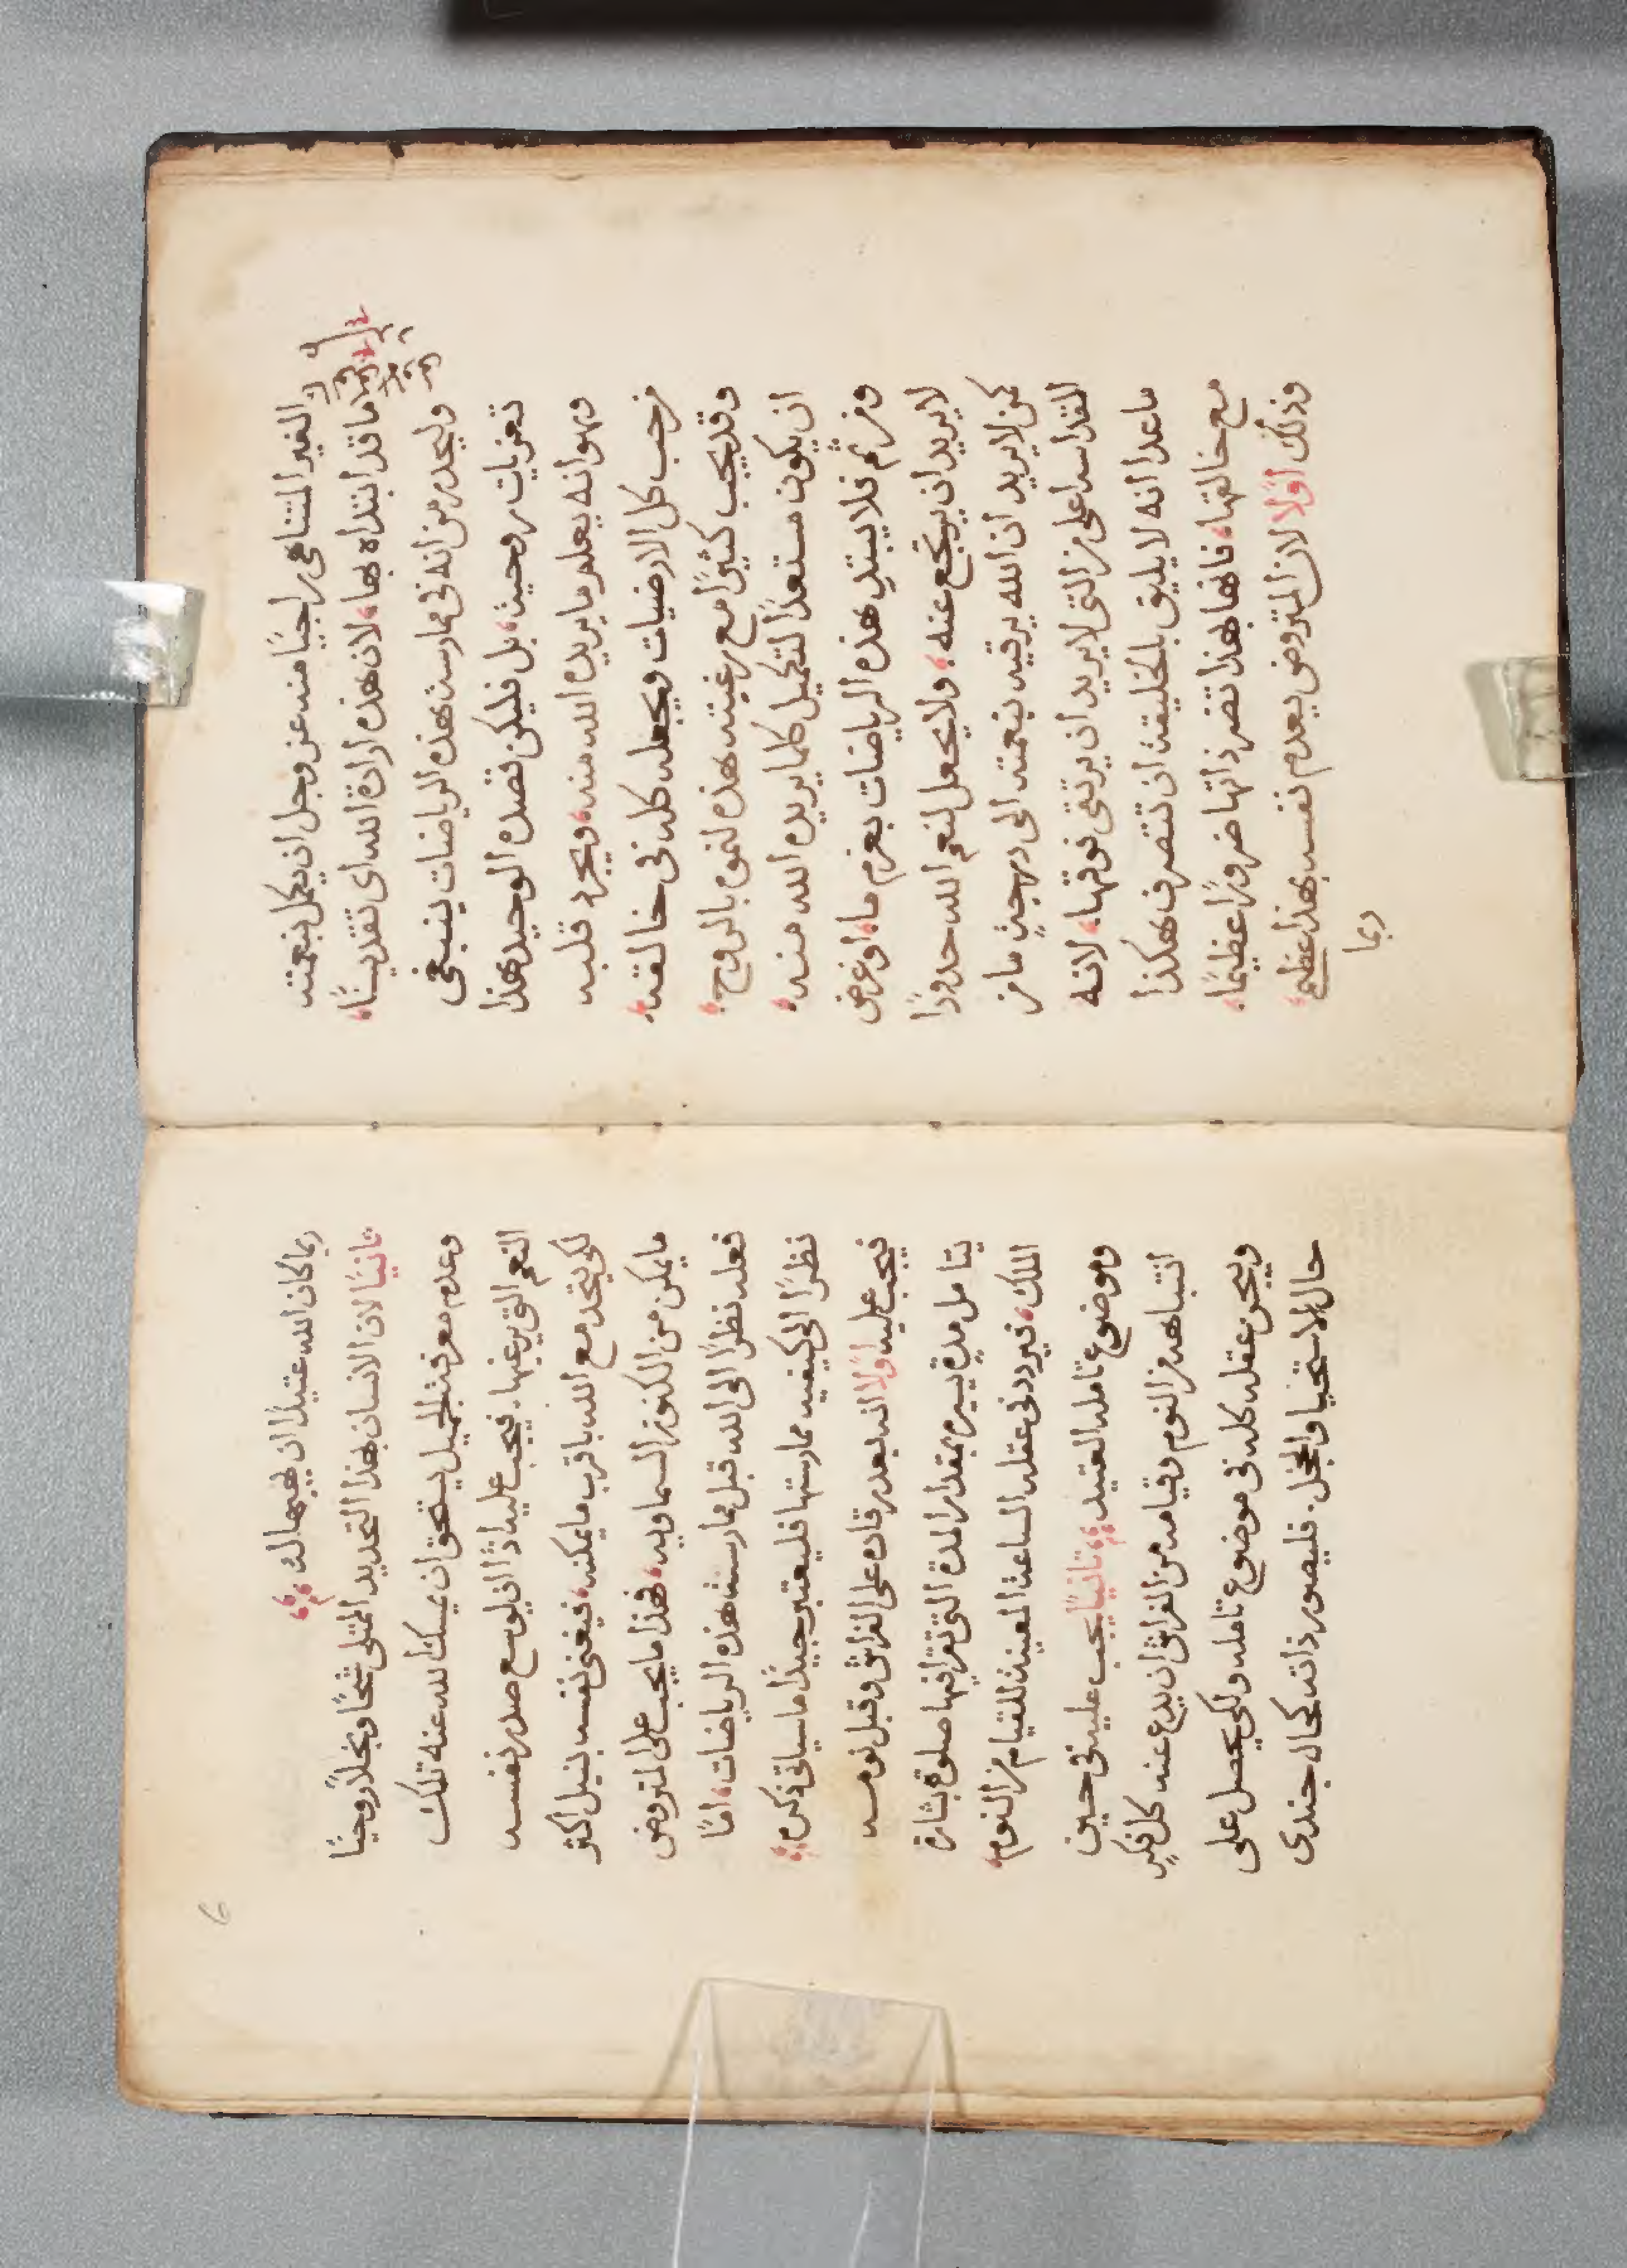 الغير المتناهي راجيًا منه عز وجل ان يكمل بنعمته
ما قد ابتداه بها، لان هذه ارادة الله اي تقديسنا،
وليحذر من انه في ممارسة هذه الرياضات يبتغي
تعزيات روحية، بل فليكن قصده الوحيد هذا
وهو انه يعلم ما يريده الله منه، ويجرد قلبه
من حب كل الارضيات ويجعله كله في خالقه،
وقد يجب كثيرًا مع رغبته هذه لنموه بالروح
ان يكون مستعدًا لتكميل كلما يريده الله منه،
ومن ثم فلا يبتدي هذه الرياضات بعزم ما، او غرض
لا يريد ان يرتجع عنه، ولا يجعل لنعم الله حدودًا
كمن لا يريد ان الله يرقيه بنعمته الى درجةٍ ما من
القداسه اعلى من التي لا يريد ان يرتقى فوقها، لانه
ما عدا انه لا يليق بالخليقة ان تتصرف هكذا
مع خالقها، فانها بهذا تضر ذاتها ضررًا عظيمًا،
وذلك اولًا لان المتروض يعدم نفسه بهذا عظيم
ربما
6
ربما كان الله عتيدًا ان يهبها له
ثانيًا لان الانسان بهذا التحديد الممتلي شحًا وبخلًا روحيًا
وعدم معرفة الجميل يستحق ان يمسك الله عنه تلك
النعم التي يرغبها. فيجب عليه اذًا ان يوسع صدر نفسه
لكي يتحد مع الله باقرب ما يمكنه، فيغني نفسه بنيل اكثر
ما يمكن من الكنوز السماويه، فهذا ما يجب على المتروض
فعله نظرًا الى الله قبل ممارسة هذه الرياضات، امّا
نظرًا الى كيفيه ممارستها فليعتبر جيدًا ما سياتي ذكره
فيجب عليه اولًا انه بعد رقاده على الفراش وقبل نومه
يتامل مدة يسيره بمقدار المدة التي تقرا فيها صلوة بشارة
الملاك، فيردد في عقله الساعة المعينة للقيام من النوم،
وموضوع تامله العتيد، ثانيًا يجب عليه في حين
انتباهه من النوم وقيامه من الفراش ان يدع عنه كل فكرٍ
ويحرز عقله كله في موضوع تامله ولكي يحصل على
حال الاستحيا والخجل. فليصور ذاته كحال جندي